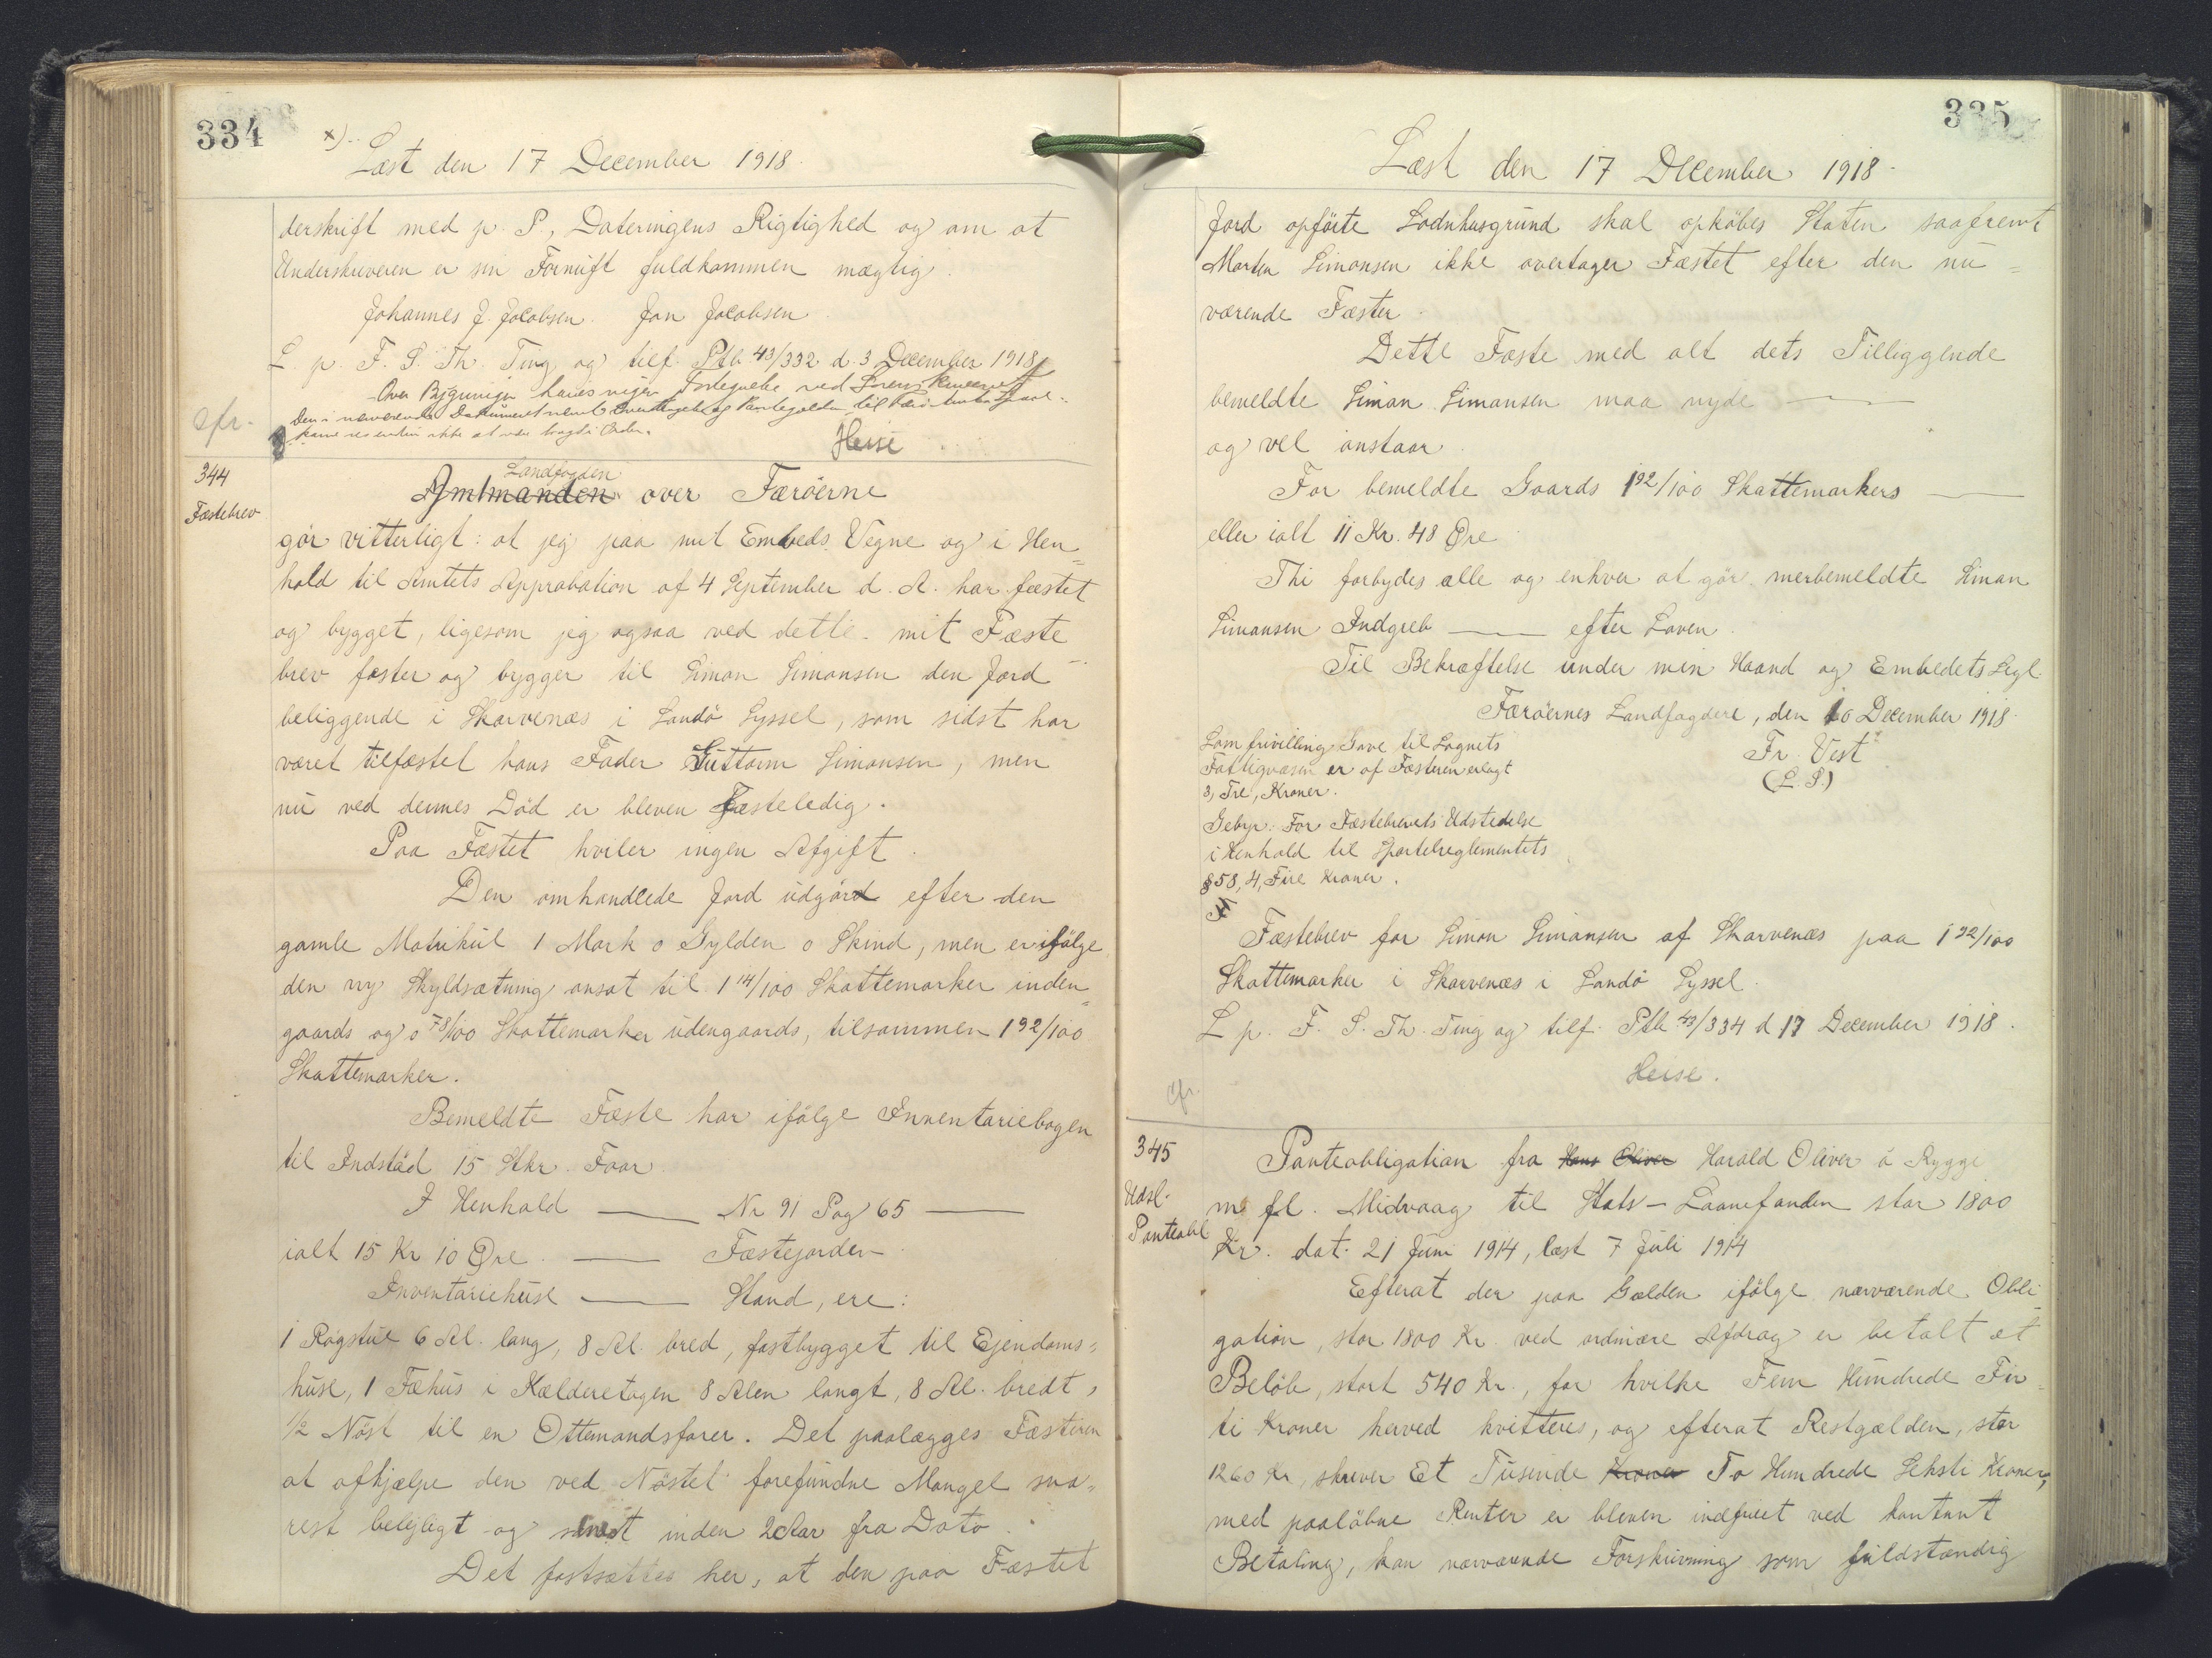 334
x)
Læst den 17 December 1918.
derskrift med p. P., Dateringens Rigtighed og om at
Underskriveren er sin Fornuft fuldkommen mægtig.
Johannes J. Jacobsen. Jon Jacobsen
L. p. F. S. Th. Ting og tilf. Ptb. 43/332 d. 3 December 1918
Over Bygningen haves ved
Den i nærværende Dokument til
ikke at være bragt i Orden.
cfr.
Heise
344
Fæstebrev
Landfogden
Amtmanden over Færöerne
gör vitterligt: at jeg paa mit Embeds Vegne og i Hen=
hold til Amtets Approbation af 4 September d. A. har fæstet
og bygget, ligesom jeg ogsaa ved dette mit Fæste
brev fæster og bygger til Simon Simonsen den Jord
beliggende i Skarvenæs i Sandö Syssel, som sidst har
været tilfæstet hans Fader Guttorm Simonsen, men
nu ved dennes Död er bleven Fæsteledig.
Paa Fæstet hviler ingen Afgift.
Den omhandlede Jord udgörd efter den
gamle Matrikul 1 Mark 0 Gylden 0 Skind, men er ifölge
den ny Skyldsætning ansat til 1 14/100 Skattemarker inden=
gaards og 0 78/100 Skattemarker udengaards, tilsammen 1 92/100
Skattemarker.
Bemeldte Fæste har ifölge Inventariebogen
til Indstöd 15 Stkr. Faar
I Henhold —— Nr 91 Pag 65 ——
ialt 15 Kr 10 Øre —— Fæstejorden
Inventariehuse —— Stand, ere:
1 Rögstue 6 Al. lang, 8 Al. bred, fastbygget til Ejendoms=
huse, 1 Fæhus i Kælderetagen 8 Alen langt, 8 Al. bredt,
1/2 Nöst til en Ottemandsfarer. Det paalægges Fæsteren
at afhjælpe den ved Nöstet forefundne Mangel sna=
rest belejligt og senest inden 2 Aar fra Dato.
Det fastsættes her, at den paa Fæstet
335
Læst den 17 December 1918.
Jord opförte Lodnhusgrund skal opköbes Staten saafremt
Morten Simonsen ikke overtager Fæstet efter den nu=
værende Fæster.
Dette Fæste med alt dets Tilliggende
bemeldte Simon Simonsen maa nyde ——
og vel anstaar
For bemeldte Gaards 1 92/100 Skattemarkers ——
eller ialt 11 Kr. 48 Øre
Thi forbydes alle og enhver at gör merbemeldte Simon
Simonsen Indgreb —— efter Loven.
Til Bekræftelse under min Haand og Embedets Segl.
Færöernes Landfogderi, den 10 December 1918.
Som frivilling Gave til Sognets
Fattigvæsen er af Fæsteren erlagt
3, Tre, Kroner.
Fr. Vest
(L. S.)
Gebyr: For Fæstebrevets Udstedelse
i Henhold til Sportelreglementets
§ 58, 4, Fire Kroner.
Fæstebrev for Simon Simonsen af Skarvenæs paa 1 92/100
Skattemarker i Skarvenæs i Sandö Syssel.
L p. F. S. Th. Ting og tilf. Ptb 43/334 d 17 December 1918.
Heise.
cfr.
345
Udsl.
Panteobl
Panteobligation fra Hans Oliver Harald Oliver á Rygge
m. fl. Midvaag til Stats-Laanefonden stor 1800
Kr. dat. 21 Juni 1914, læst 7 Juli 1914
Efterat der paa Gælden ifölge nærværende Obli=
gation, stor 1800 Kr. ved ordinære Afdrag er betalt et
Belöb, stort 540 Kr., for hvilke Fem Hundrede Fir=
ti Kroner herved kvitteres, og efterat Restgælden, stor
1260 Kr, skriver Et Tusinde Kroner To Hundrede Seksti Kroner,
med paalöbne Renter er bleven indfriet ved kontant
Betaling, kan nærværende Forskrivning som fuldstændig